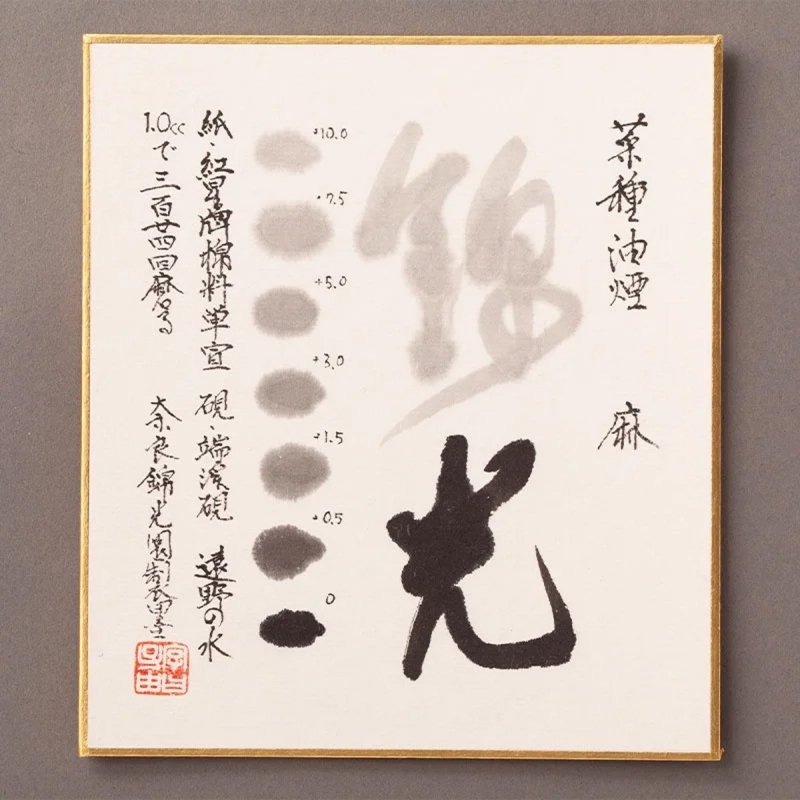 菜種油煙 麻
錦光
+10.0
+7.5
+5.0
+3.0
+1.5
+0.5
0
紙・紅星牌棉料単宣 硯・端渓硯 遠野の水
1.0ccで三百廿四回麻る
奈良錦光園製墨